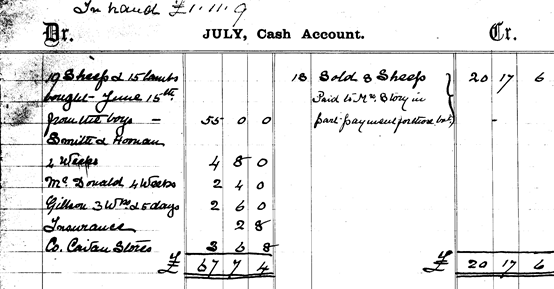 In hand £1.11.9
Dr. JULY, Cash Account. Cr.
19 Sheep & 15 lambs
bought June 15th
from the boys - 55 0 0
Smith & Honan
2 Weeks 4 8 0
Mc Donald 4 Weeks 2 4 0
Gillson 3 Wks & 5 days 2 6 0
Insurance 2 8
Co. Stores 3 6 8
£ 67 7 4
18 Sold 8 Sheep 20 17 6
Paid to Mr. Story in
part payment for those bot -
£ 20 17 6